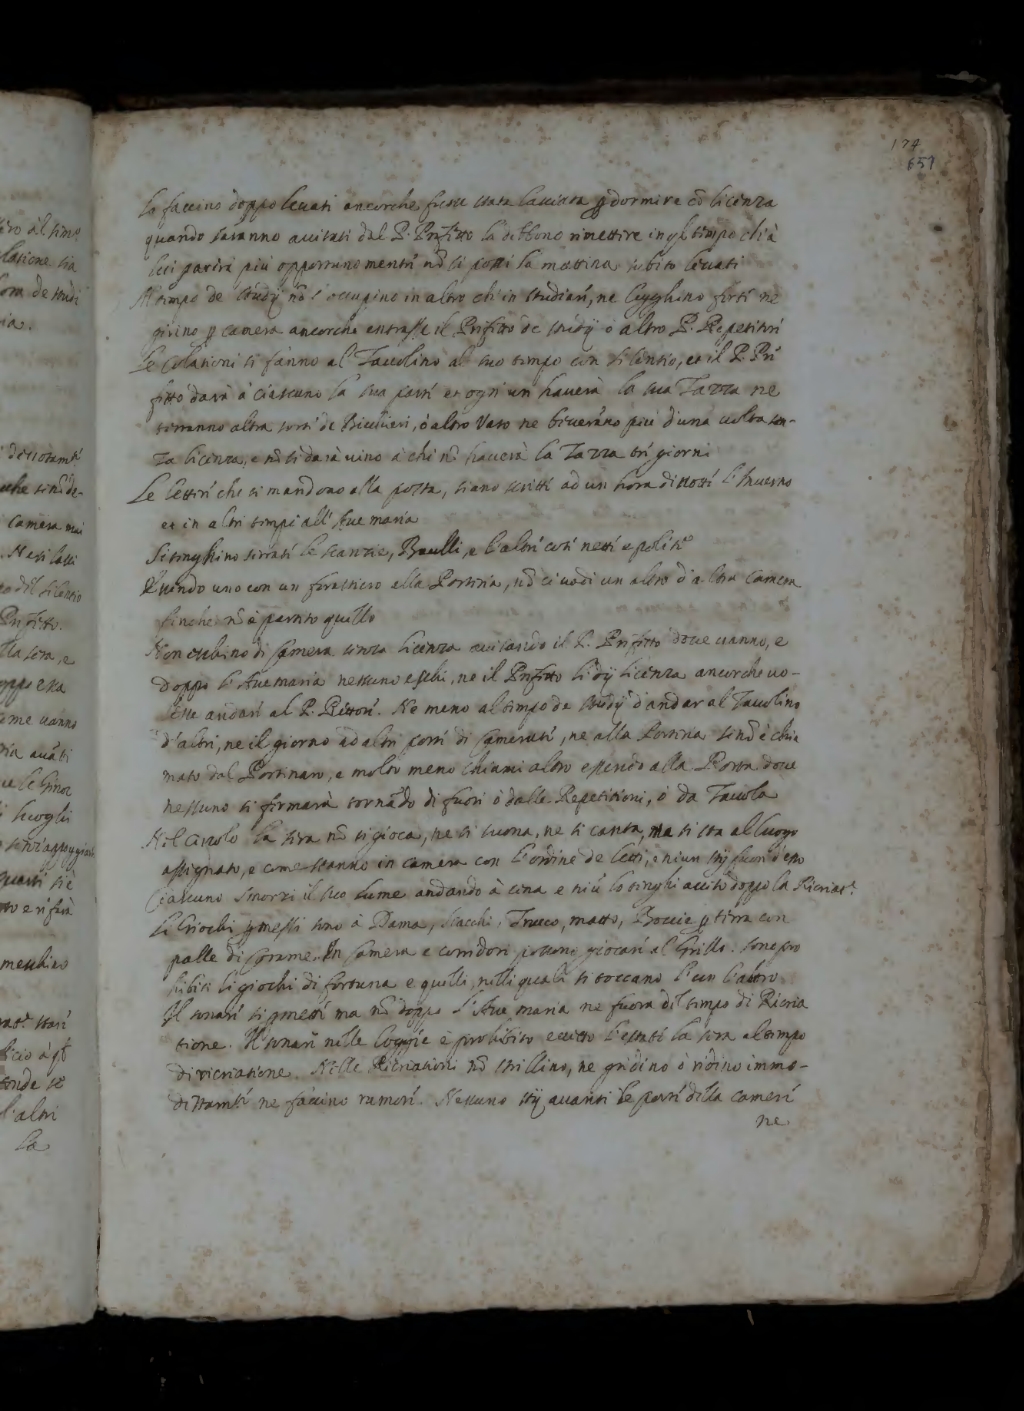 174
651
lo faccino doppo levati ancorche fusse stata lasciata p dormire cõ licenza
quando saranno avisati dal P. Prefetto la debbono rimettere in ql tempo ch'à
lui parirà più opportuno mentre nõ si possi la mattina subito levati
Al tempo de studij nõ s'occupino in altro che in studiare, ne legghino forte ne
girino p camera ancorche entrasse il Prefetto de studij ò altro P. Repetitore
Le Colationi si fanno al Tavolino al suo tempo con silentio, et il P. Pre
fetto darà à ciascuno la sua parte et ogn'un haverà la sua Tazza ne
terranno altra sorte de Bicchieri, ò altro Vaso ne beverãno più d'una volta sen-
za licenza, e nõ si darà vino à chi nõ haverà la Tazza tre giorni
Le lettere che si mandono alla posta, siano scritte ad un hora di notte l'Inverno
et in altri tempi all'Ave maria
Si tenghino serrati le scanzie, Baulli, e l'altre cose nette e polite
Quando uno con un forastiero alla Portaria, nõ ci vadi un altro d'altra Camera
finche nõ è partito quello
Non eschino di Camera senza licenza avisando il P. Prefetto dove vanno, e
doppo l'Ave maria nessuno eschi, ne il Prefetto li dij licenza ancorche vo-
lesse andare al P. Rettore. Ne meno al tempo de studij d'andar al Tavolino
d'altri, ne il giorno ad altre porte di Camerate, ne alla Portaria se nõ è chia
mato dal Portinaro, e molto meno chiami altro essendo alla Porta dove
nessuno si fermarà tornãdo di fuori ò dalle Repetitioni, ò da Tavola
Nel Circolo la sera nõ si gioca, ne si suona, ne si canta, ma si sta al luogo
assignato, e come stanno in camera con l'ordine de letti, e niun stij fuori d'esso
Ciascuno smorzi il suo lume andando à cena e niũ lo tenghi acceso doppo la Ricreat.e
Li Giochi pmessi sono à Dama, Scacchi, Trucco, matto, Boccie p terra con
palle di Corame. In Camera e corridori possono giocare al Grillo. Sono pro
hibiti li giochi di fortuna e quelli, nelli quali si toccano l'un l'altro.
Il sonare si pmette ma nõ doppo l'Ave maria ne fuora del tempo di Ricrea
tione. Il sonare nelle loggie è prohibito eccetto l'estate la sera al tempo
di ricreatione. Nelle Ricreationi nõ strillino, ne gridino ò ridino immo-
destamte ne faccino rumore. Nessuno stij avanti le porte della camere
ne